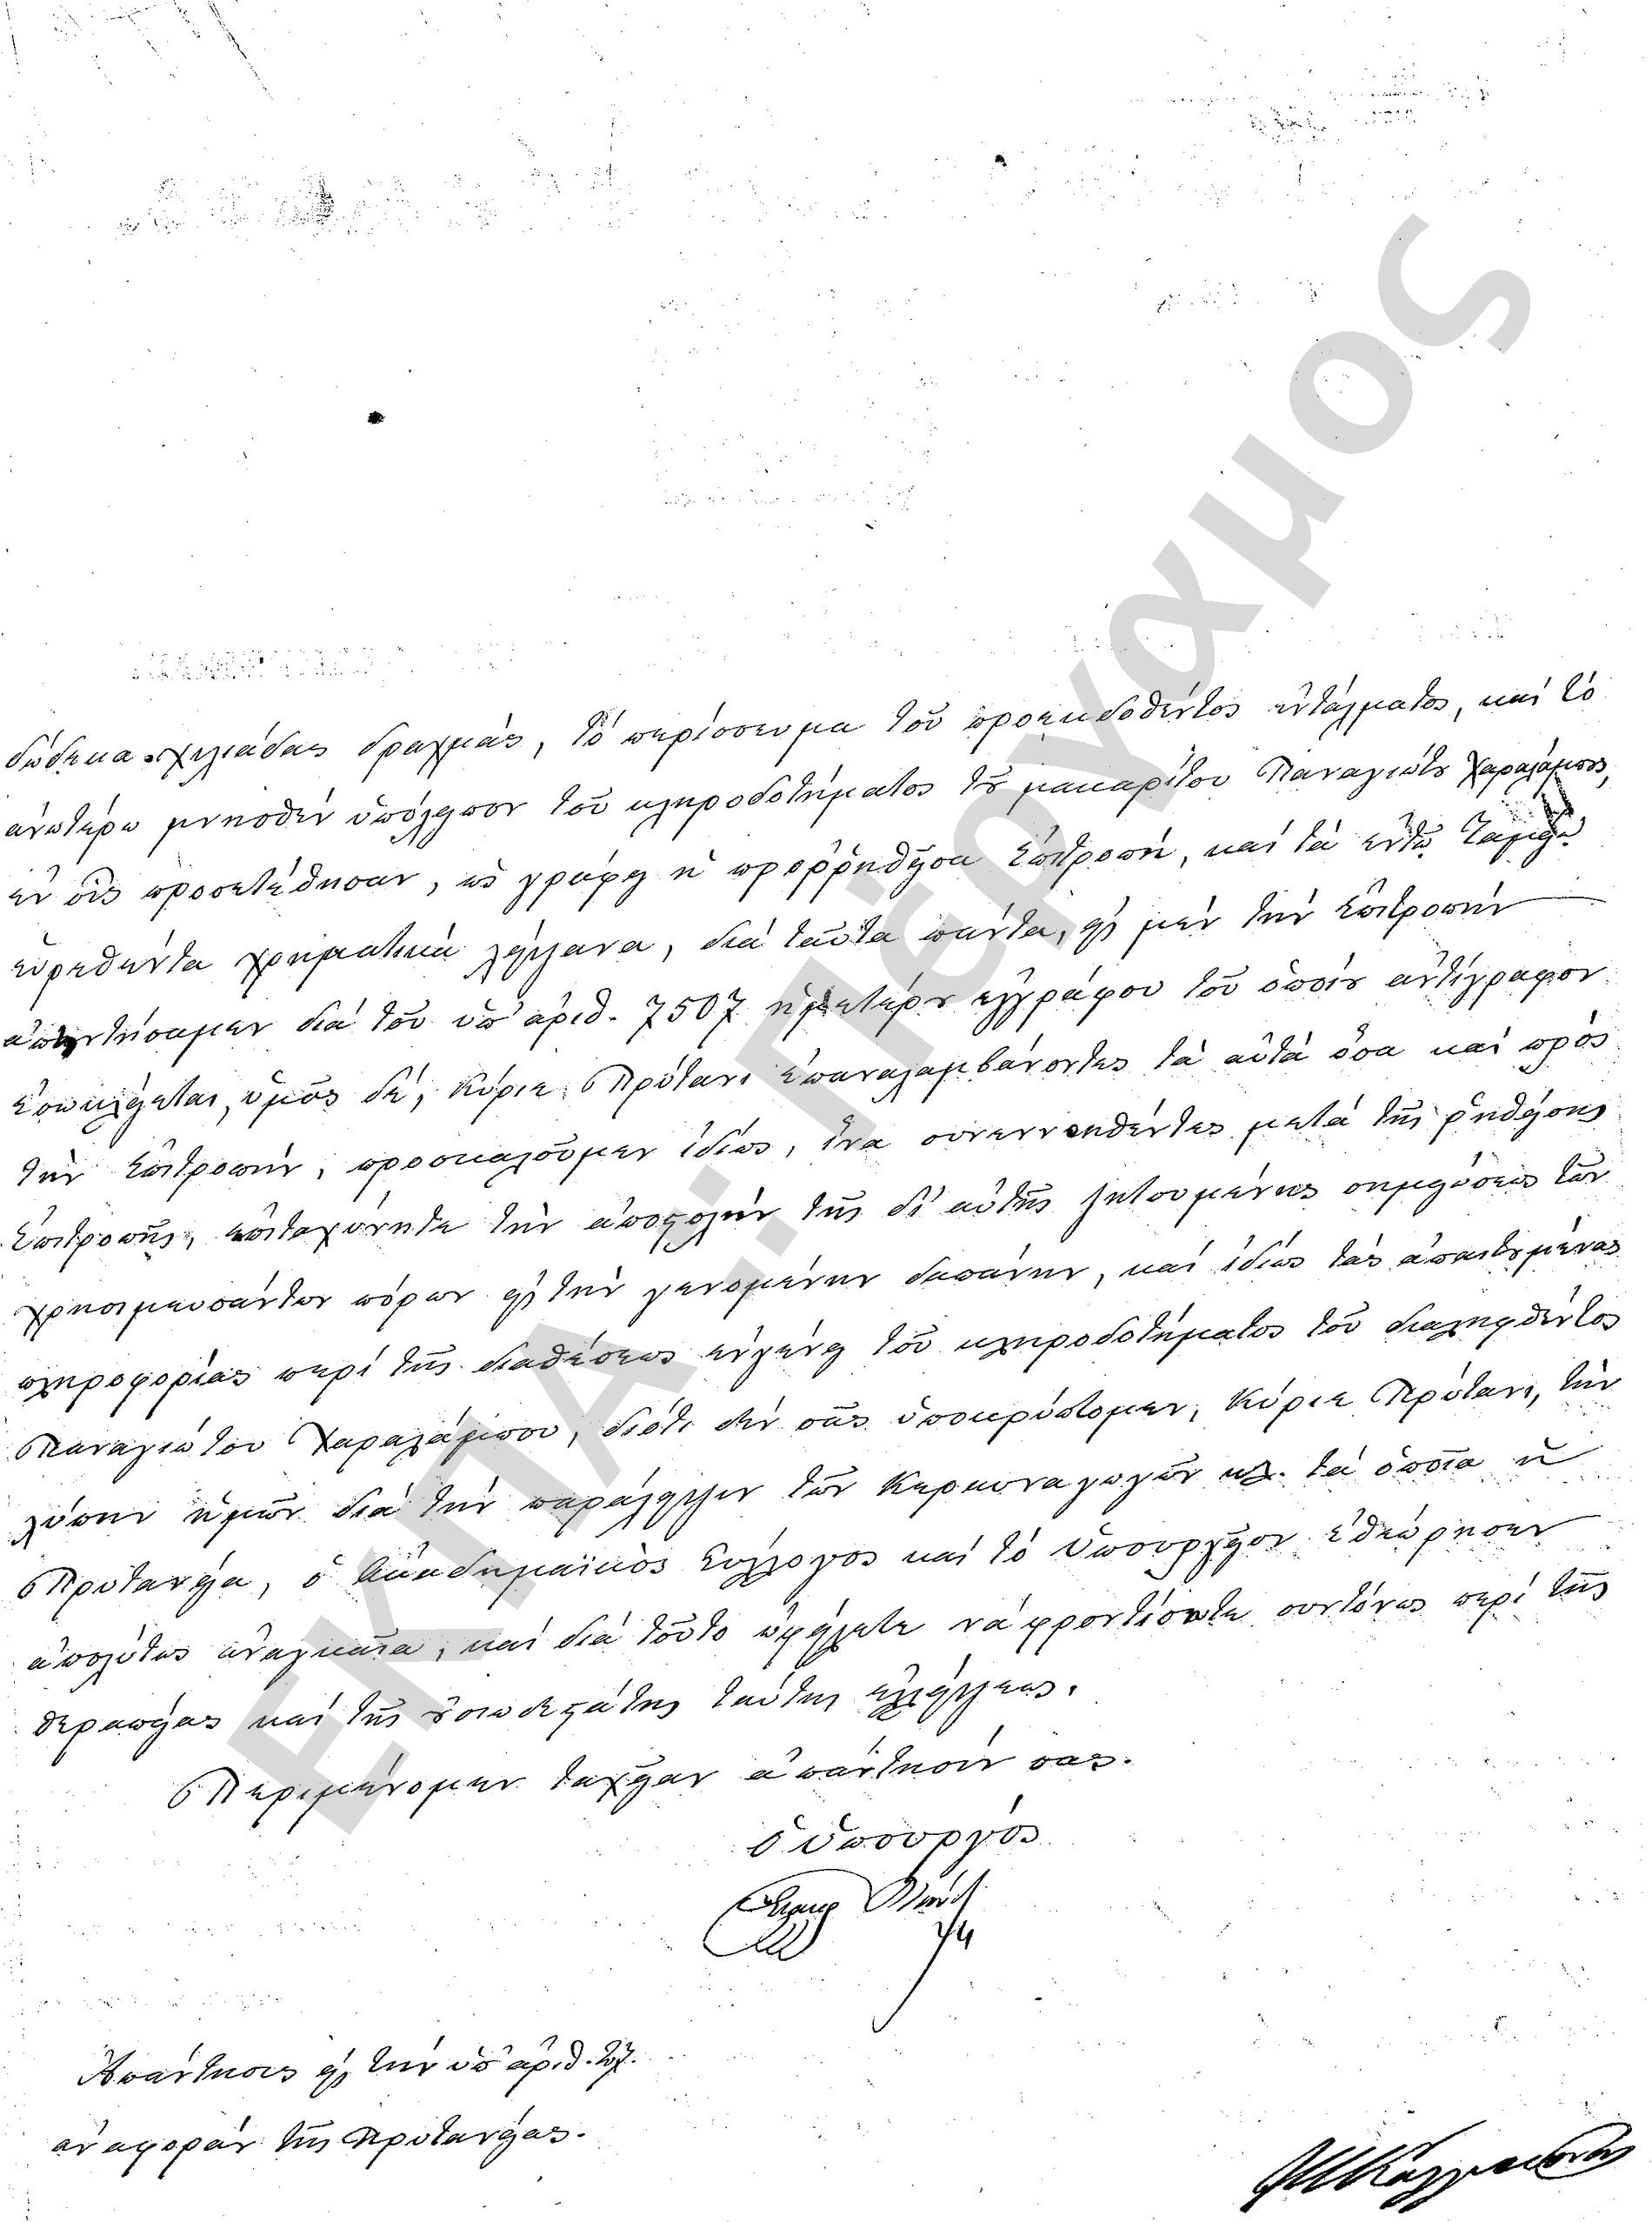 δώδεκα χιλιάδας δραχμάς, τό περίσσευμα τοῦ προεκδοθέντος ἐντάλματος, καί τό
ἀνωτέρω μνησθέν ὑπόλοιπον τοῦ κληροδοτήματος τοῦ μακαρίτου Παναγιώτου Χαραλάμπους,
ἐν οἷς προσετέθησαν, ὡς γράφει ἡ προῤῥηθεῖσα Ἐπιτροπή, καί τά ἐν τῷ Ταμείῳ
εὑρεθέντα χρηματικά λείψανα, διά ταῦτα πάντα, εἰς μέν τήν Ἐπιτροπήν
ἀπηντήσαμεν διά τοῦ ὑπ' ἀριθ. 7507 ἡμετέρου ἐγγράφου τοῦ ὁποίου ἀντίγραφον
ἐσωκλείεται, ὑμᾶς δέ, Κύριε Πρύτανι ἐπαναλαμβάνοντες τά αὐτά ὅσα καί πρός
τήν Ἐπιτροπήν, προσκαλοῦμεν ἰδίως, ἵνα συνεννοηθέντες μετά τῆς ῥηθείσης
Ἐπιτροπῆς, ἐπιταχύνητε τήν ἀποστολήν τῆς δι' αὐτῆς ζητουμένης σημειώσεως τῶν
χρησιμευσάντων πόρων εἰς τήν γενομένην δαπάνην, καί ἰδίως τάς ἀπαιτουμένας
πληροφορίας περί τῆς διαθέσεως ἐν γένει τοῦ κληροδοτήματος τοῦ διαληφθέντος
Παναγιώτου Χαραλάμπου, διότι δέν σᾶς ὑποκρύπτομεν, Κύριε Πρύτανι, τήν
λύπην ἡμῶν διά τήν παράλειψιν τῶν Κεραυναγωγῶν κλ. τά ὁποῖα ἡ
Πρυτανεία, ὁ Ἀκαδημαϊκός Σύλλογος καί τό Ὑπουργεῖον ἐθεώρησεν
ἀπολύτως ἀναγκαῖα, καί διά τοῦτο ὀφείλετε νά φροντίσητε συντόνως περί τῆς
θεραπείας καί τῆς οὐσιωδεστάτης ταύτης ἐλλείψεως.
Περιμένομεν ταχεῖαν ἀπάντησίν σας.
Ὁ Ὑπουργός
Ἀπάντησις εἰς τήν ὑπ' ἀριθ.
ἀναφοράν τῆς Πρυτανείας.
ΕΚΠΑ - Πέργαμος